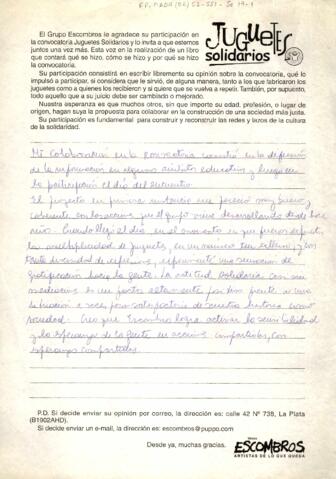 JUGUETES
solidarios
El Grupo Escombros le agradece su participación en la
convocatoria Juguetes Solidarios y lo invita a que estemos
juntos una vez más. Esta vez en la realización de un libro
que contará qué se hizo, cómo se hizo y por qué se hizo
la convocatoria.
Su participación consistirá en escribir libremente su opinión sobre la convocatoria, qué lo
impulsó a participar, si considera que le sirvió, de alguna manera, tanto a los que fabricaron los
juguetes como a quienes los recibieron y si quiere que se vuelva a repetir. También, por supuesto,
todo aquello que a su juicio debe ser cambiado o mejorado.
Nuestra esperanza es que muchos otros, sin que importe su edad, profesión, o lugar de
origen, hagan suya la propuesta para colaborar en la construcción de una sociedad más justa.
Su participación es fundamental para construir y reconstruir las redes y lazos de la cultura
de la solidaridad.
Mi colaboración en la convocatoria consistió en la difusión
de la información en algunos ámbitos educativos y luego en
la participación el día del encuentro.
El proyecto en primera instancia me pareció muy bueno y
coherente con las acciones que el grupo viene desarrollando desde hace
años. Cuando llegó el día en el momento en que fueron expuestos
la multiplicidad de juguetes, en un número tan extenso, y con
tanta diversidad de expresiones, experimenté una sensación de
gratificación hacia la gente. La actitud solidaria con
es un gesto altamente positivo frente a una
situación a veces poco satisfactoria de nuestra historia como
sociedad. Creo que Escombros logra activar la sensibilidad
y la esperanza de la gente en acciones compartidas con
esperanzas compartidas.
P.D. Si decide enviar su opinión por correo, la dirección es: calle 42 Nº 738, La Plata
(B1902AHD).
Si decide enviar un e-mail, la dirección es: escombros@puppo.com
Desde ya, muchas gracias.
ESCOMBROS
ARTISTAS DE LO QUE QUEDA